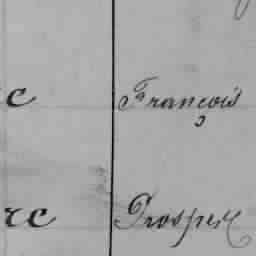 c François
rc Prosper